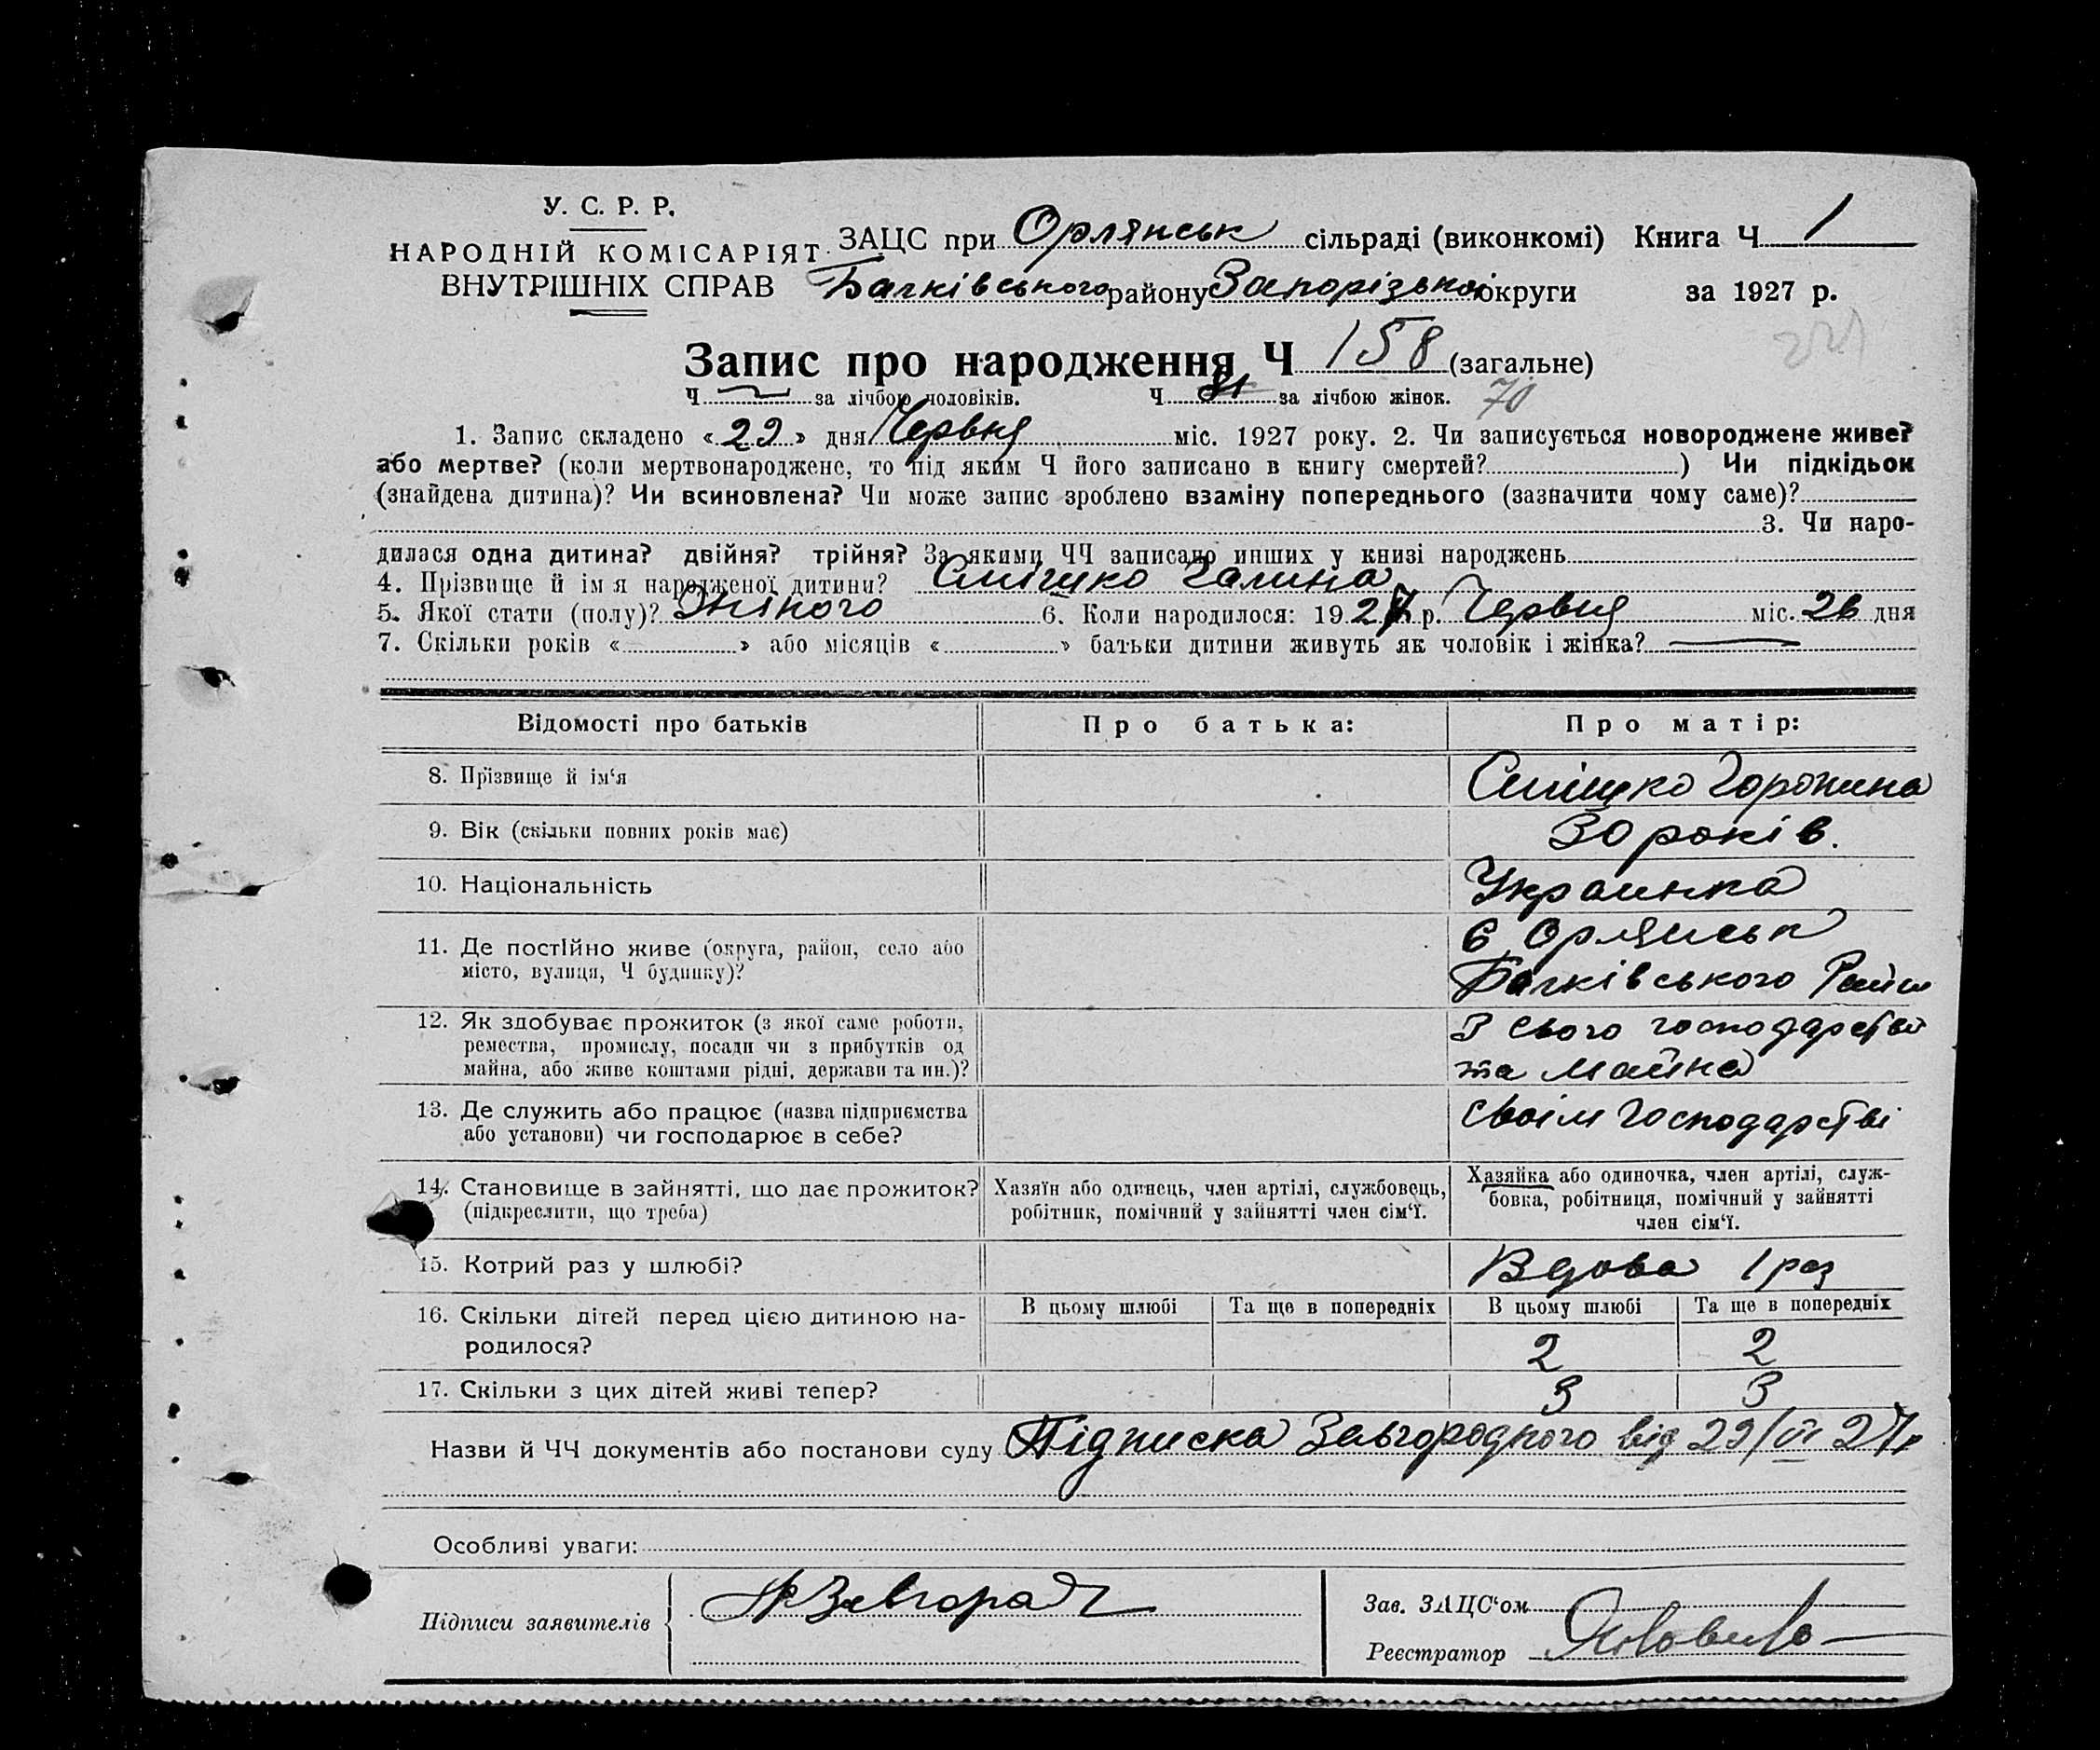 У. С. Р. Р.
НАРОДНІЙ КОМІСАРІЯТ
ВНУТРІШНІХ СПРАВ
ЗАЦС при Орлянськ сільраді (виконкомі) Книга Ч 1
Балківського району Запорізької округи за 1927 р.
Запис про народження Ч 158 (загальне)
Ч за лічбою чоловіків. Ч за лічбою жінок. 70
1. Запис складено «29» дня Червня міс. 1927 року. 2. Чи записується новороджене живе?
або мертве? (коли мертвонароджене, то під яким Ч його записано в книгу смертей? ) Чи підкідьок
(знайдена дитина)? Чи всиновлена? Чи може запис зроблено взаміну попереднього (зазначити чому саме)?
3. Чи наро-
дилася одна дитина? двійня? трійня? За якими ЧЧ записано инших у книзі народжень
4. Прізвище й ім я народженої дитини? Галина
5. Якої стати (полу)? Жіного 6. Коли народилося: 1927 р. Червня міс. 26 дня
7. Скільки років « » або місяців « » батьки дитини живуть як чоловік і жінка?
Відомості про батьків Про батька: Про матір:
8. Прізвище й ім‘я Горпина
9. Вік (скільки повних років має) 30 років.
10. Національність Украинка
11. Де постійно живе (округа, район, село або
місто, вулиця, Ч будинку)? С Орлянськ
Балківського Району
12. Як здобуває прожиток (з якої саме роботи,
ремества, промислу, посади чи з прибутків од
майна, або живе коштами рідні, держави та ин.)? З свого господарства
та майна
13. Де служить або працює (назва підприємства
або установи) чи господарює в себе? Своїм господарстві
14. Становище в зайнятті, що дає прожиток?
(підкреслити, що треба)
Хазяїн або одинець, член артілі, службовець,
робітник, помічний у зайнятті член сім‘ї.
Хазяйка або одиночка, член артілі, служ-
бовка, робітниця, помічний у зайнятті
член сім‘ї.
15. Котрий раз у шлюбі? Вдова 1 раз
16. Скільки дітей перед цією дитиною на-
родилося?
В цьому шлюбі Та ще в попередніх В цьому шлюбі Та ще в попередніх
2 2
17. Скільки з цих дітей живі тепер? 3 3
Назви й ЧЧ документів або постанови суду Підписка Завгородного від 29/VI 27р
Особливі уваги:
Підписи заявителів Завгород
Зав. ЗАЦС‘ом
Реєстратор